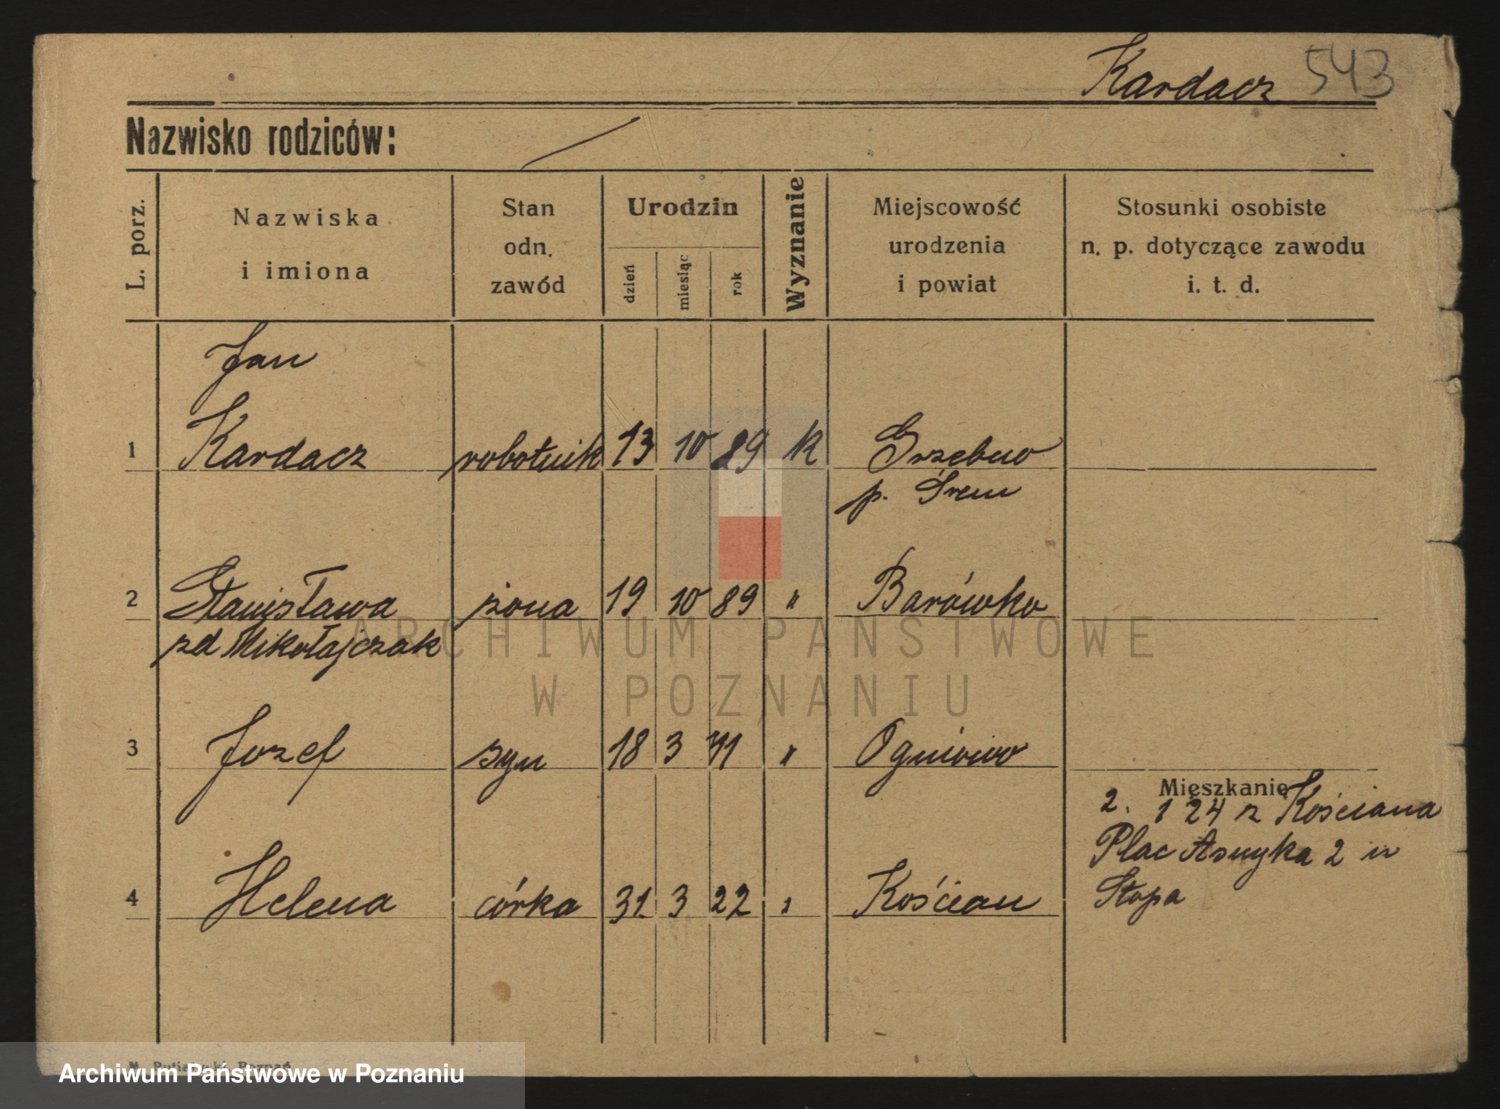 Kardacz 543
Nazwisko rodziców:
L. porz.
Nazwiska
i imiona
Stan
odn.
zawód
Urodzin
dzień
miesiąc
rok
Wyznanie
Miejscowość
urodzenia
i powiat
Stosunki osobiste
n. p. dotyczące zawodu
i. t. d.
Jan
1 Kardacz robotnik 13 10 89 k
p. Śrem
2 Stanisława żona 19 10 89 " Barówko
zd Mikołajczak
ARCHIWUM PAŃSTWOWE
W POZNANIU
3 Jozef syn 18 3 " Ogniowo
Mieszkanie
2. 1 24 z Kościana
Plac Asnyka 2 u
Stopa
4 Helena córka 31 3 22 " Kościan
Poznań
Archiwum Państwowe w Poznaniu